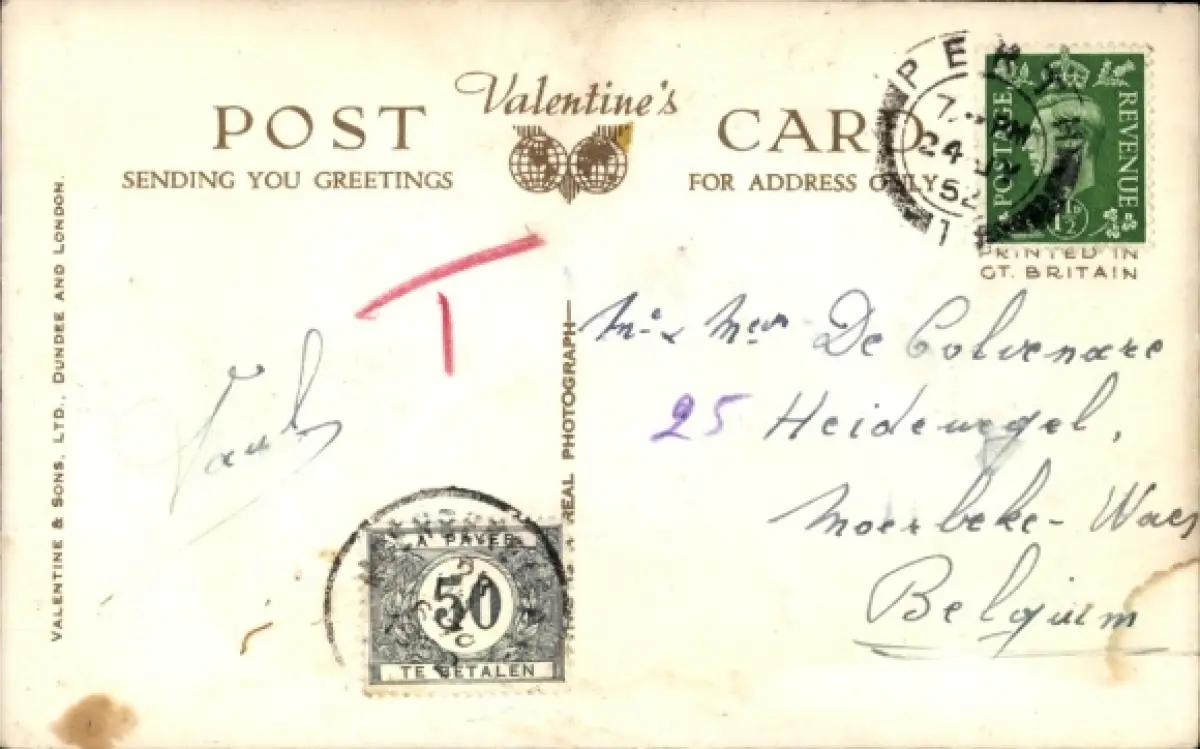 Valentine's
POST CARD
SENDING YOU GREETINGS
FOR ADDRESS ONLY
PER
24
52
1
POSTAGE
REVENUE
1½
PRINTED IN
GT. BRITAIN
VALENTINE & SONS, LTD., DUNDEE AND LONDON.
REAL PHOTOGRAPH
T
Mr & Mevr De Colvenare
25 Heidewegel,
Moerbeke-Waes
Belgium
A PAYER
50
TE BETALEN